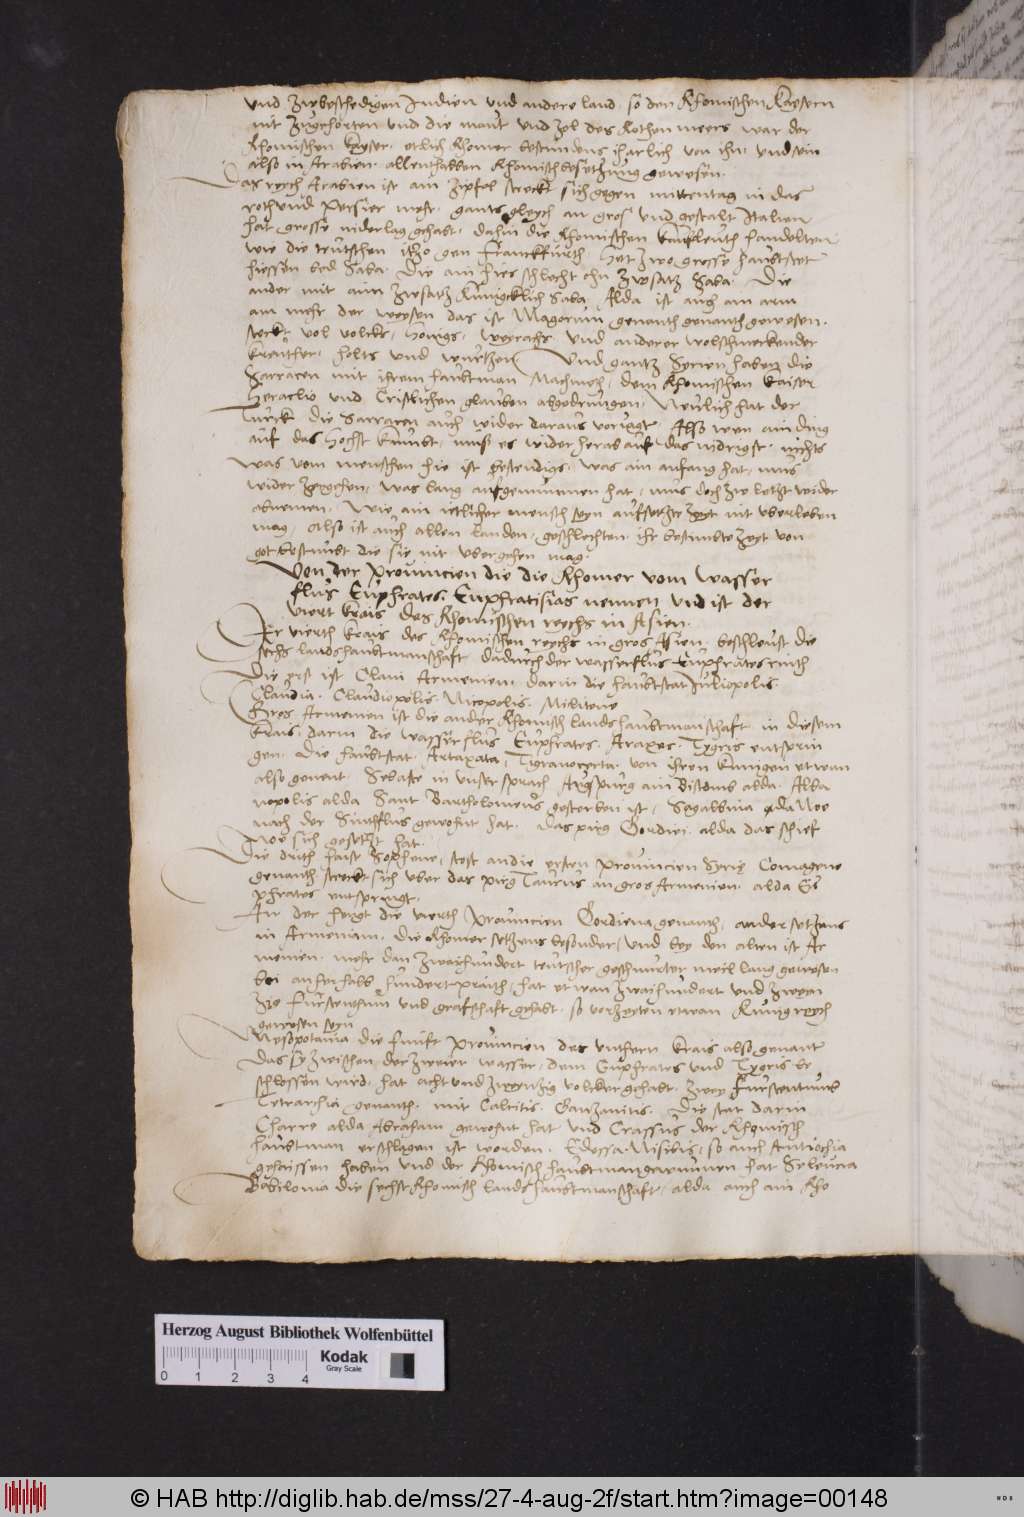 und zubeschedigen Indien und andere land so den Rhomischen Kaesern
nit zugehorten und die maut und zol des Rothen meers war der
Rhomischen Kayser etlich Rhomer bestundens iharlich von ihn und sein
also in Arabien allenthalben Rhomisch besetzung gewesen.
Das reych Arabien ist am zipfel streckt sich gegen mittentag in das
roth und Persier mehr gants gleych an gros und gestalt Italien
hat grosse niderlag gehabt dahin die Rhomischen kaufleuth handelten
wie die teutschen itzo gen Franckfurth Het zwo grosse haubtstet
hiessen bed Saba Die ain hies schlecht ohn zusatz Saba Die
ander mit aim zusatz Kunigcklich Saba Alda ist auch am arm
am mehr der weysen das ist Magorum genanth genanth gewesen.
steckt vol volcks, Honigs, weyrachs, und anderer wolschmeckender
kreuther, holts und wurtzen Und gantz Syrien haben die
Sarracen mit ihrem haubtman Machmeth, dem Rhomischen Kaiser
Heraclio und Cristlichen glauben abgedrungen, Neulich hat der
Turck die Sarracen auch wider daraus veriagt. Also wen ain ding
auf das Hochst kumbt, muß es wider herab auf das nidrigst, nichts
was vom menschen hie ist bestendigs, was ain anfang hat, mus
wider zergehen, was lang aufgenummen hat, mus doch zu letzt wider
abnemen, Wie ain ietlicher mensch seyn aufsetzte zeyt nit uberleben
mag, Also ist auch allen landen, geschlechten ihr bestimbte zeyt von
got bestimbt die sie nit ubergehen mag.
Von der Provincien die die Rhomer vom wasser
flus Euphrates, Euphratisias nennen und ist der
viert krais des Rhomischen reychs in Asien.
Der vierth krais des Rhomischen reychs in gros Asien, beschleust die
sechs landshaubtmanschaft dadurch der wasserflus Euphrates rinth
Die erst ist Clain Armenien, darin die haubtstat Iuliopolis.
Claudia, Claudiopolis, Nicopolis, Militene
Gros Armenien ist die ander Rhomisch landshaubtmanschaft, in diesem
krais, darin die wasserflus Euphrates, Araxes, Tygris entsprin
gen. Die haubtstat, Artaxata, Tigranocerta, von ihren kunigen etwan
also genent. Sebaste in unser sprach Augspurg ain Bistumb alda. Alba
nopolis alda Sant Bartholomeus gestorben ist, Sagalbina alda Noe
nach der Sintflus gewohnt hat. Das pirg Gordiei, alda das schief
Noe sich gesetzt hat.
Die drith haist Sophene, stost an die ersten Provincien Syrię Comagene
genanth, streckt sich uber das pirg Taurus an gros Armenien, alda Eu
phrates entspringt.
An der heigt die vierth Provincien Gordiena genanth, ander setzens
in Armeniam, die Rhomer setzens besonder, und bey den alten ist Ar
menien, mehr dan zwaihundert teutscher geschnurter meil lang gewesen
bei anfenfalb hundert praith, hat etwan zwaihundert und zwein
zig Furstenthum und grafschaft gehabt, so vorzeyten etwan Kunigreych
gewesen seyn
Mesopotania die funft Provincien des vierten krais also genant
das sy zwischen der zweier wasser, dem Euphrates und Tygris be
schlossen wird, hat acht und zweintzig volcker gehabt, zwey Furstentumb
Tetrarchia genanth, mit Calcitis, Gauzanitis, Die stat darin
Charre alda Abraham gewohnt hat und Crassus der Rhomisch
haubtman erschlagen ist worden, Edessa, Nisibis, so auch Antiochia
gehaissen haben und der Rhomisch haubtman gewunnen hat Seleucia
Babilonia die sechst Rhomisch landshaubtmanschaft, alda auch ain Rho
Herzog August Bibliothek Wolfenbüttel
Kodak
Gray Scale
0 1 2 3 4
© HAB http://diglib.hab.de/mss/27-4-aug-2f/start.htm?image=00148